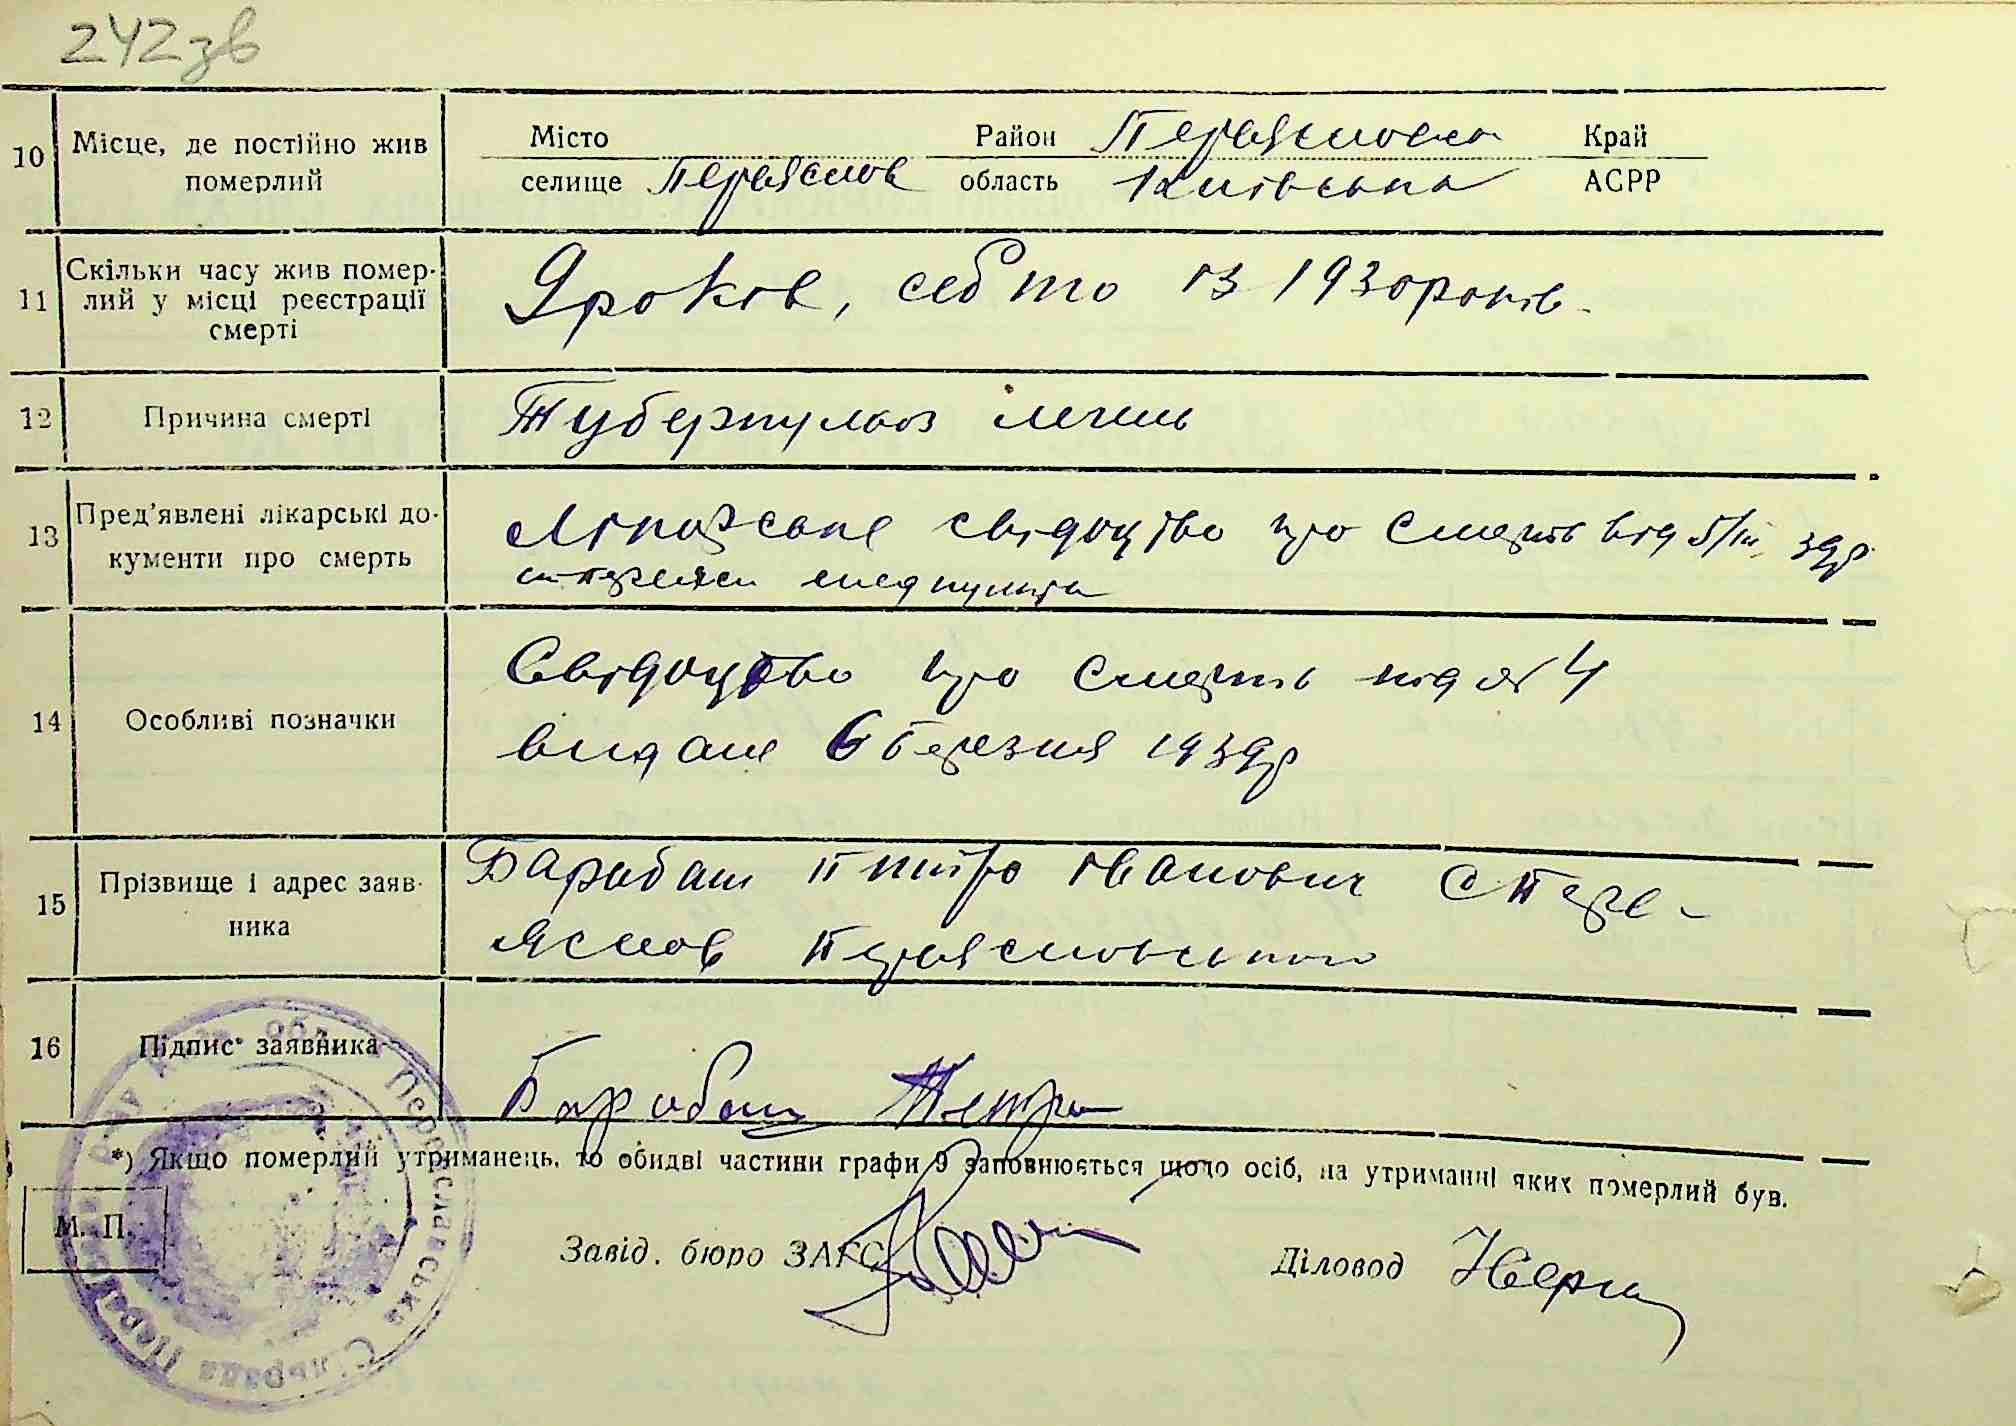 242зв
10 Місце, де постійно жив померлий
Місто Район Переяславськ Край
селище Переяслов область Київська АСРР
11 Скільки часу жив помер-
лий у місці реєстрації
смерті
9 років, себто із 1930 років.
12 Причина смерті Туберкульоз легень
13 Пред'явлені лікарські до-
кументи про смерть
Лікарське свідоцтво про смерть від 5/ІІІ 39р
медпункта
14 Особливі позначки
Свідоцтво про смерть під № 4
видане 6 березня 1939р
15 Прізвище і адрес заяв-
ника
Барабаш Петро Іванович с Пере-
яслов Переясловського
16 Підпис заявника
Барабаш Петро
*) Якщо померлий утриманець, то обидві частини графи 9 заповнюється щодо осіб, на утриманні яких померлий був.
М. П.
Завід. бюро ЗАГС
Діловод
Переяславська Сільрада